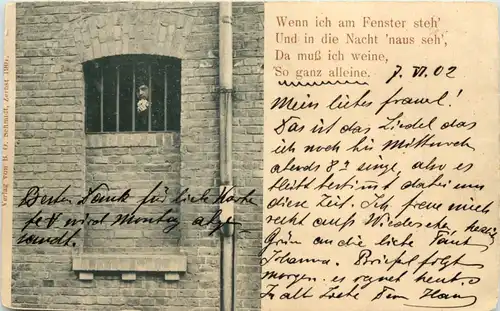 Verlag von R. O. Schmidt, Zerbst 1901.
Wenn ich am Fenster steh'
Und in die Nacht 'naus seh',
Da muß ich weine,
So ganz alleine.
7. VI. 02
Mein liebes Frauel!
Das ist das Liedel das
ich noch bis Mittwoch
abends 8 singe, also es
bleibt bestimmt dabei um
diese Zeit. Ich freue mich
recht aufs Wiedersehen, herzig
Grüße an die liebe Tante
Johanna. Briefel folgt
morgen. es regnet heut.
In alt Liebe Dein Hans
Besten Dank für liebe Karte
wird Montag abge-
sandt.